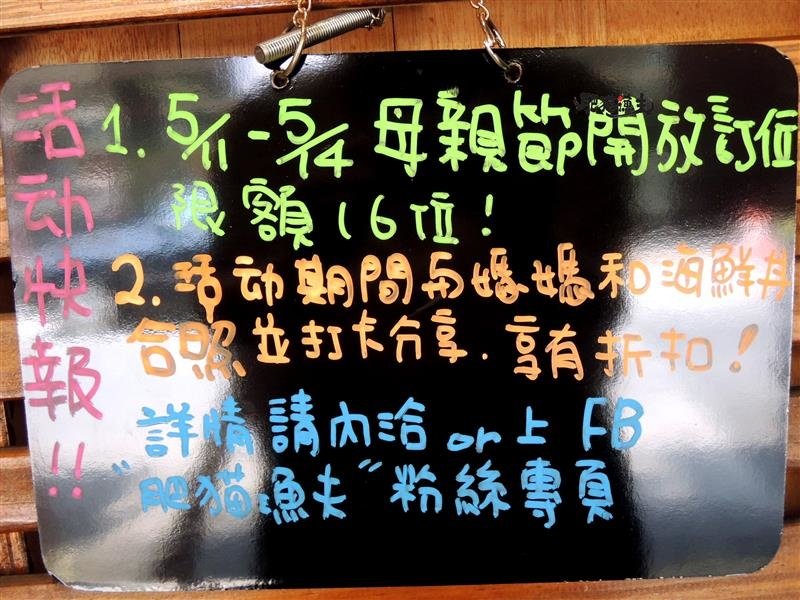 活动快報!!
1. 5/11-5/14 母親節開放訂位
限額16位!
2. 活动期間与媽媽和海鮮丼
合照並打卡分享.享有折扣!
詳情請內洽 or 上 FB
"肥猫漁夫"粉絲專頁